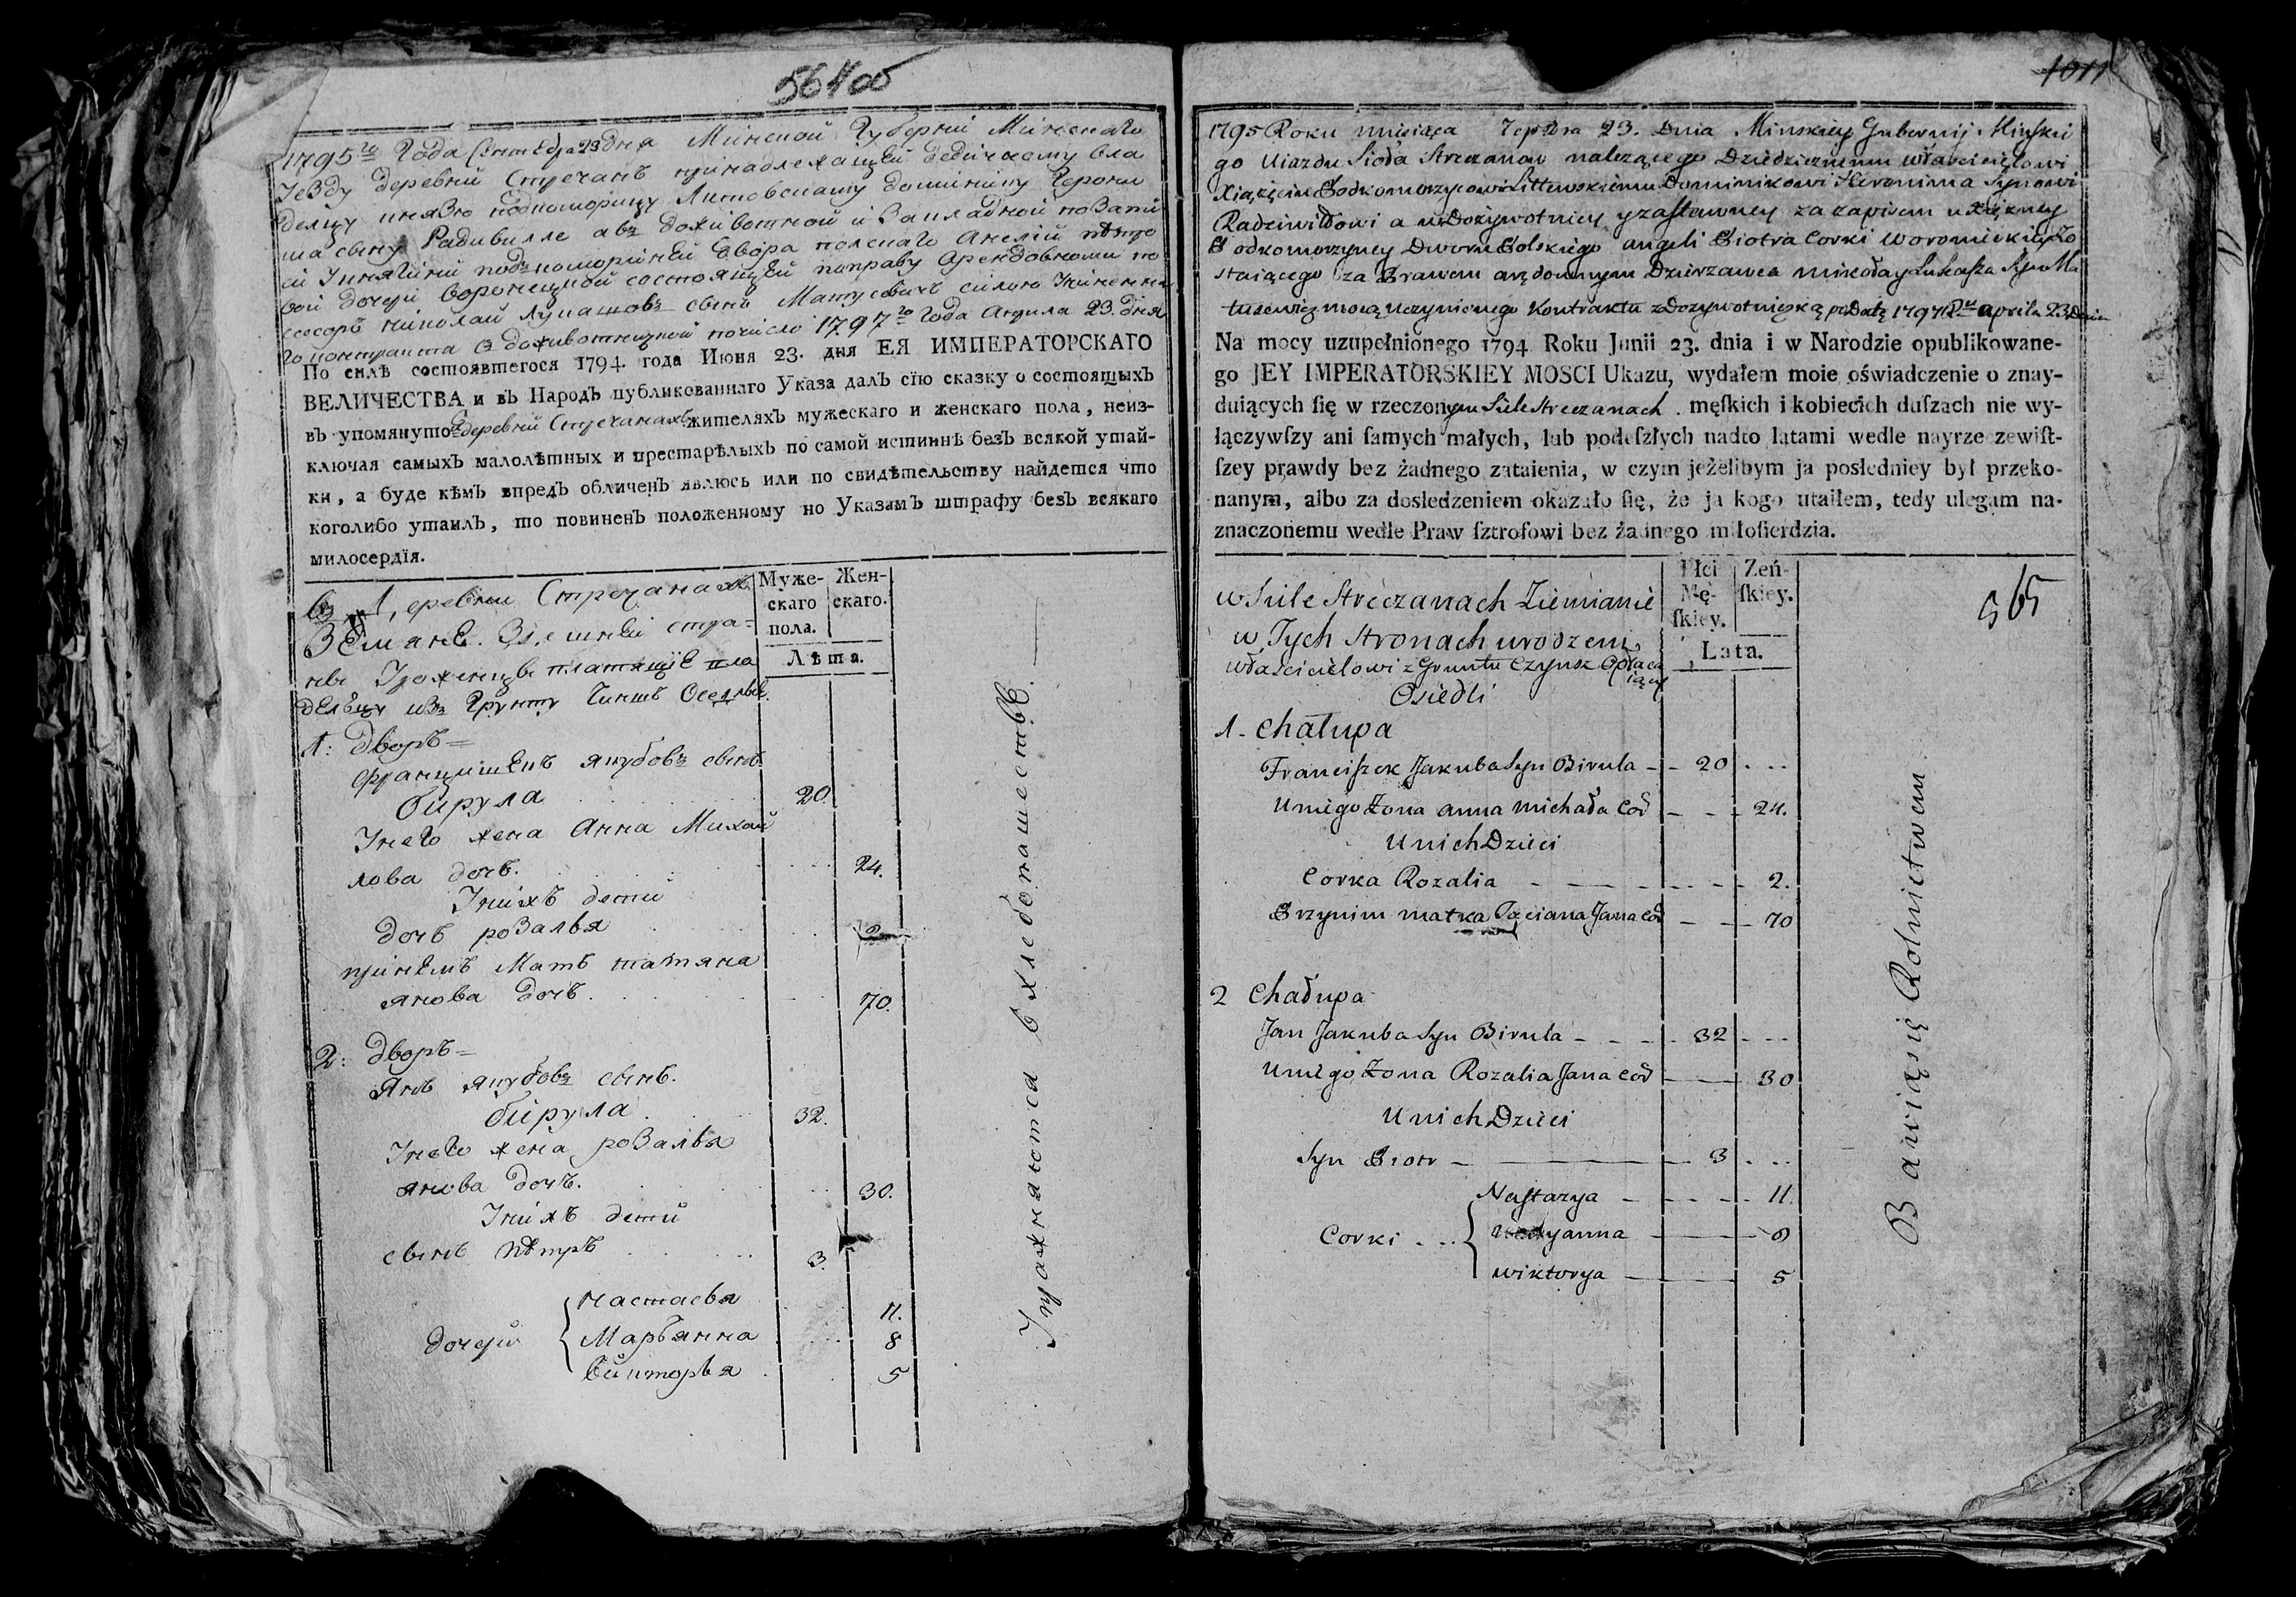 564об
1795го Года Сентебра 23 дня Минской Губерній Минскаго
Уезду деревни Стречанъ принадлежащей дедичному вла
делцу князю подкоморицу Литовскому доминику Герони
ма сыну Радивилле авъ доживотной и закладной по запи
си Княгини подкоморинѣй двора полскаго Анелій петро
вой дочери воронецкой состоящей поправу арендовному по
сесоръ николай лукашовъ сынъ Матусевичъ силою
го контракта з доживотницкой почисло 1797го Года Апрла 23. дня
По силѣ состоявшегося 1794. года Июня 23. дня ЕЯ ИМПЕРАТОРСКАГО
ВЕЛИЧЕСТВА и въ Народъ публикованнаго Указа далъ сїю сказку о состоящыхъ
въ упомянуто деревни Стречанахъ жителяхъ мужескаго и женскаго пола, неиз-
ключая самыхъ малолѣтныхъ и престарѣлыхъ по самой истиннѣ безъ всякой утай-
ки, а буде кѣмъ впредъ обличенъ явлюсь или по свидѣтельству найдется что
коголибо утаилъ, то повиненъ положенному но Указамъ штрафу безъ всякаго
милосердїя.
въ деревни Стречанахъ
Земане. Здешней стра=
ны Уроженцы платящіе вла
делцу изъ Грунту Чиншъ Оседлые.
Муже-
скаго
пола.
Жен-
скаго.
Лѣта.
1: дворъ=
францишекъ якубовъ сынъ
бирула 20.
Унего жена Анна Михай
лова дочь. 24.
Унихъ дети
дочь розалья 2
принемъ Мать татяна
янова дочь. 70.
2: дворъ=
Янъ якубовъ сынъ.
бирула. 32.
Унего жена розалья
янова дочь. 30.
Унихъ дети
сынъ петръ 3.
дочери
настасья 11.
Марьянна 8
викторья 5
Упражняются в хлебопашестве.
1011
1795 Roku miesiąca 7epbra 23. Dnia Minskiey Gubernij Minski
go Uiazdu Sioła Streczanow należącego Dziedzicznemu właścicielowi
Xiążęciu Podkomorzycowi Littewskiemu Dominikowi Hieronima Synowi
Radziwiłłowi a w Dożywotniey y zastawney za zapisem u Xiężney
Podkomorzyney Dworu Polskiego angeli Piotra Corki Woronieckiey Zo
staiącego za Prawem arędownym Dzierżawca mikołay Łukasza Syn Ma
tusewicz mocą uczynionego Kontraktu z Dożywotnicką po Datę 1797 Ru aprila 23 Dnia
Na mocy uzupełnionego 1794 Roku Junii 23. dnia i w Narodzie opublikowane-
go JEY IMPERATORSKIEY MOSCI Ukazu, wydałem moie oświadczenie o znay-
duiących ſię w rzeczonym Siele Streczanach. męſkich i kobiecich duſzach nie wy-
łączywſzy ani ſamych małych, lub podeſzłych nadto latami wedle nayrzezewiſt-
ſzey prawdy bez żadnego zataienia, w czym jeżelibym ja posledniey był przeko-
nanym, albo za dosledzeniem okazało ſię, że ja kogo utaiłem, tedy ulegam na-
znaczonemu wedle Praw ſztrofowi bez żadnego miłoſierdzia.
w Siele Streczanach Ziemianie
w Tych stronach urodzeni,
właścicielowi z Gruntu Czynsz Opłaca
iący
Osiedli
Płci
Mę-
ſkiey.
Zeń-
ſkiey.
Lata.
565
1. Chałupa
Franciſzek Jakuba Syn Birula - - 20 . . .
U niego Żona anna michała Cor - - - 24.
U nich Dzieci
Corka Rozalia - - - 2.
Przynim matka Taciana Jana Cor - - 70
2 Chałupa
Jan Jakuba Syn Birula - - - 32 . . .
U niego Żona Rozalia Jana Cor - - 30
U nich Dzieci
Syn Piotr - - 3 . . .
Corki . . .
Naſtazya - - - - 11.
Maryanna - - 8
Wiktorya - - 5
Bawiąsię Rolnictwem